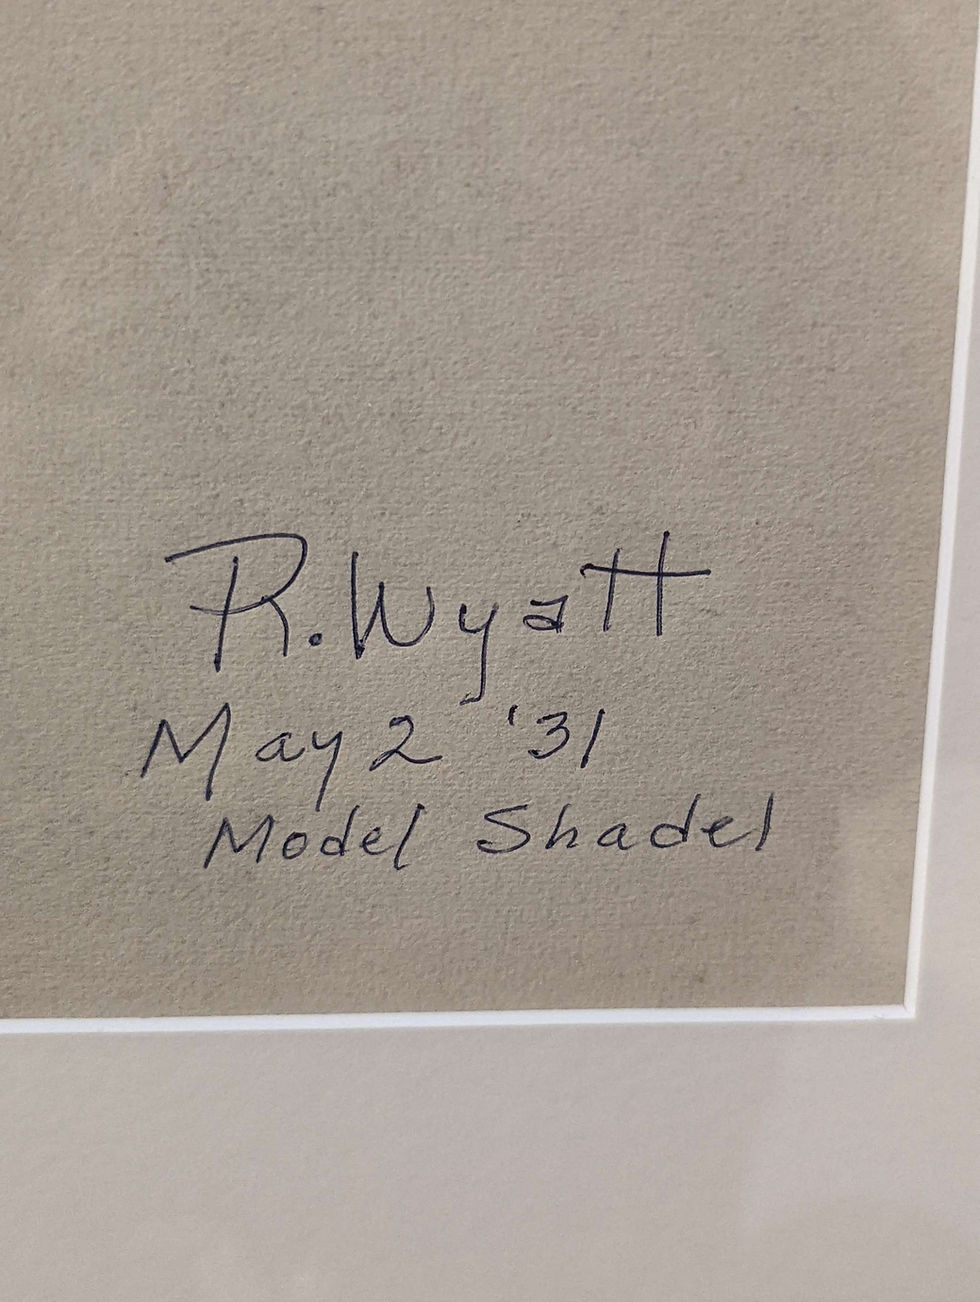 R. Wyatt
May 2 '31
Model Shadel